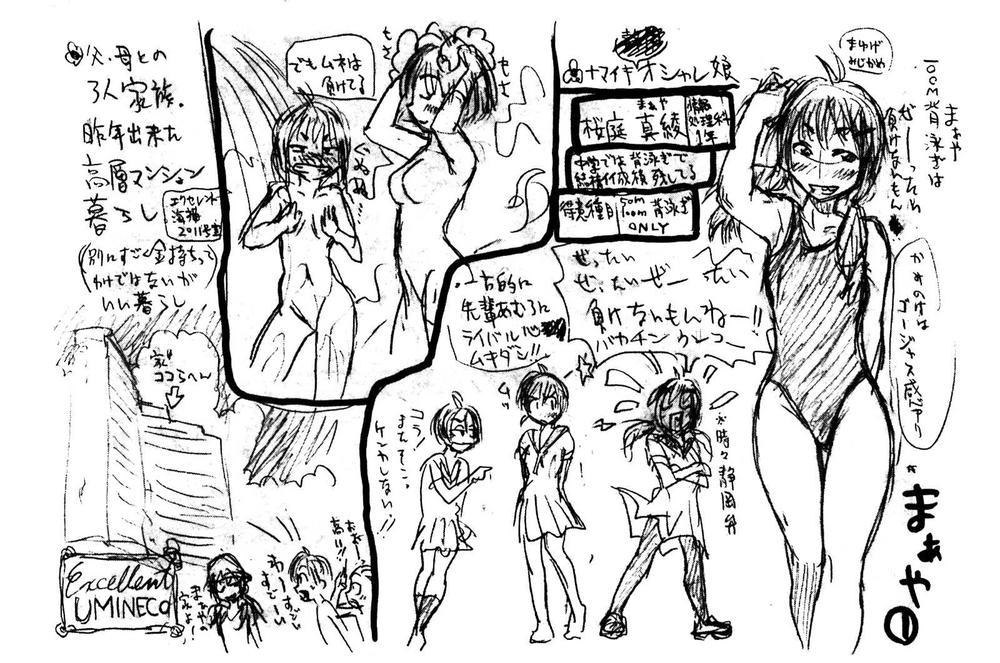 まゆげ
みじかめ
まあや
100M背泳ぎは
ぜーったい
負けないもん
かみのけは
ゴージャス感アリ
まぁや①
ナマイキオシャレ娘
まあや
桜庭 真綾
情報
処理科
1年
中学では背泳ぎで
結構イイ成績残してる
得意種目
50m
100m
背泳ぎ
ONLY
ぜったい
ぜったいぜーったい
負けないもんねー!!
バカチンが
一方的に
先輩あむろに
ライバル心
ムキダシ!!
※時々静岡弁
コラ!
まちそこっ
ケンカしない!!
でもムネは
負けてる
もさ
もさ
父・母との
3人家族。
昨年出来た
高層マンション
暮らし
エクセレント
海猫
2011号室
(別にすごく金持ちって
わけではないが
いい暮らし
家
ココらへん
Excellent
UMINECO
おおー
高い!!
わーすごい
すごーい